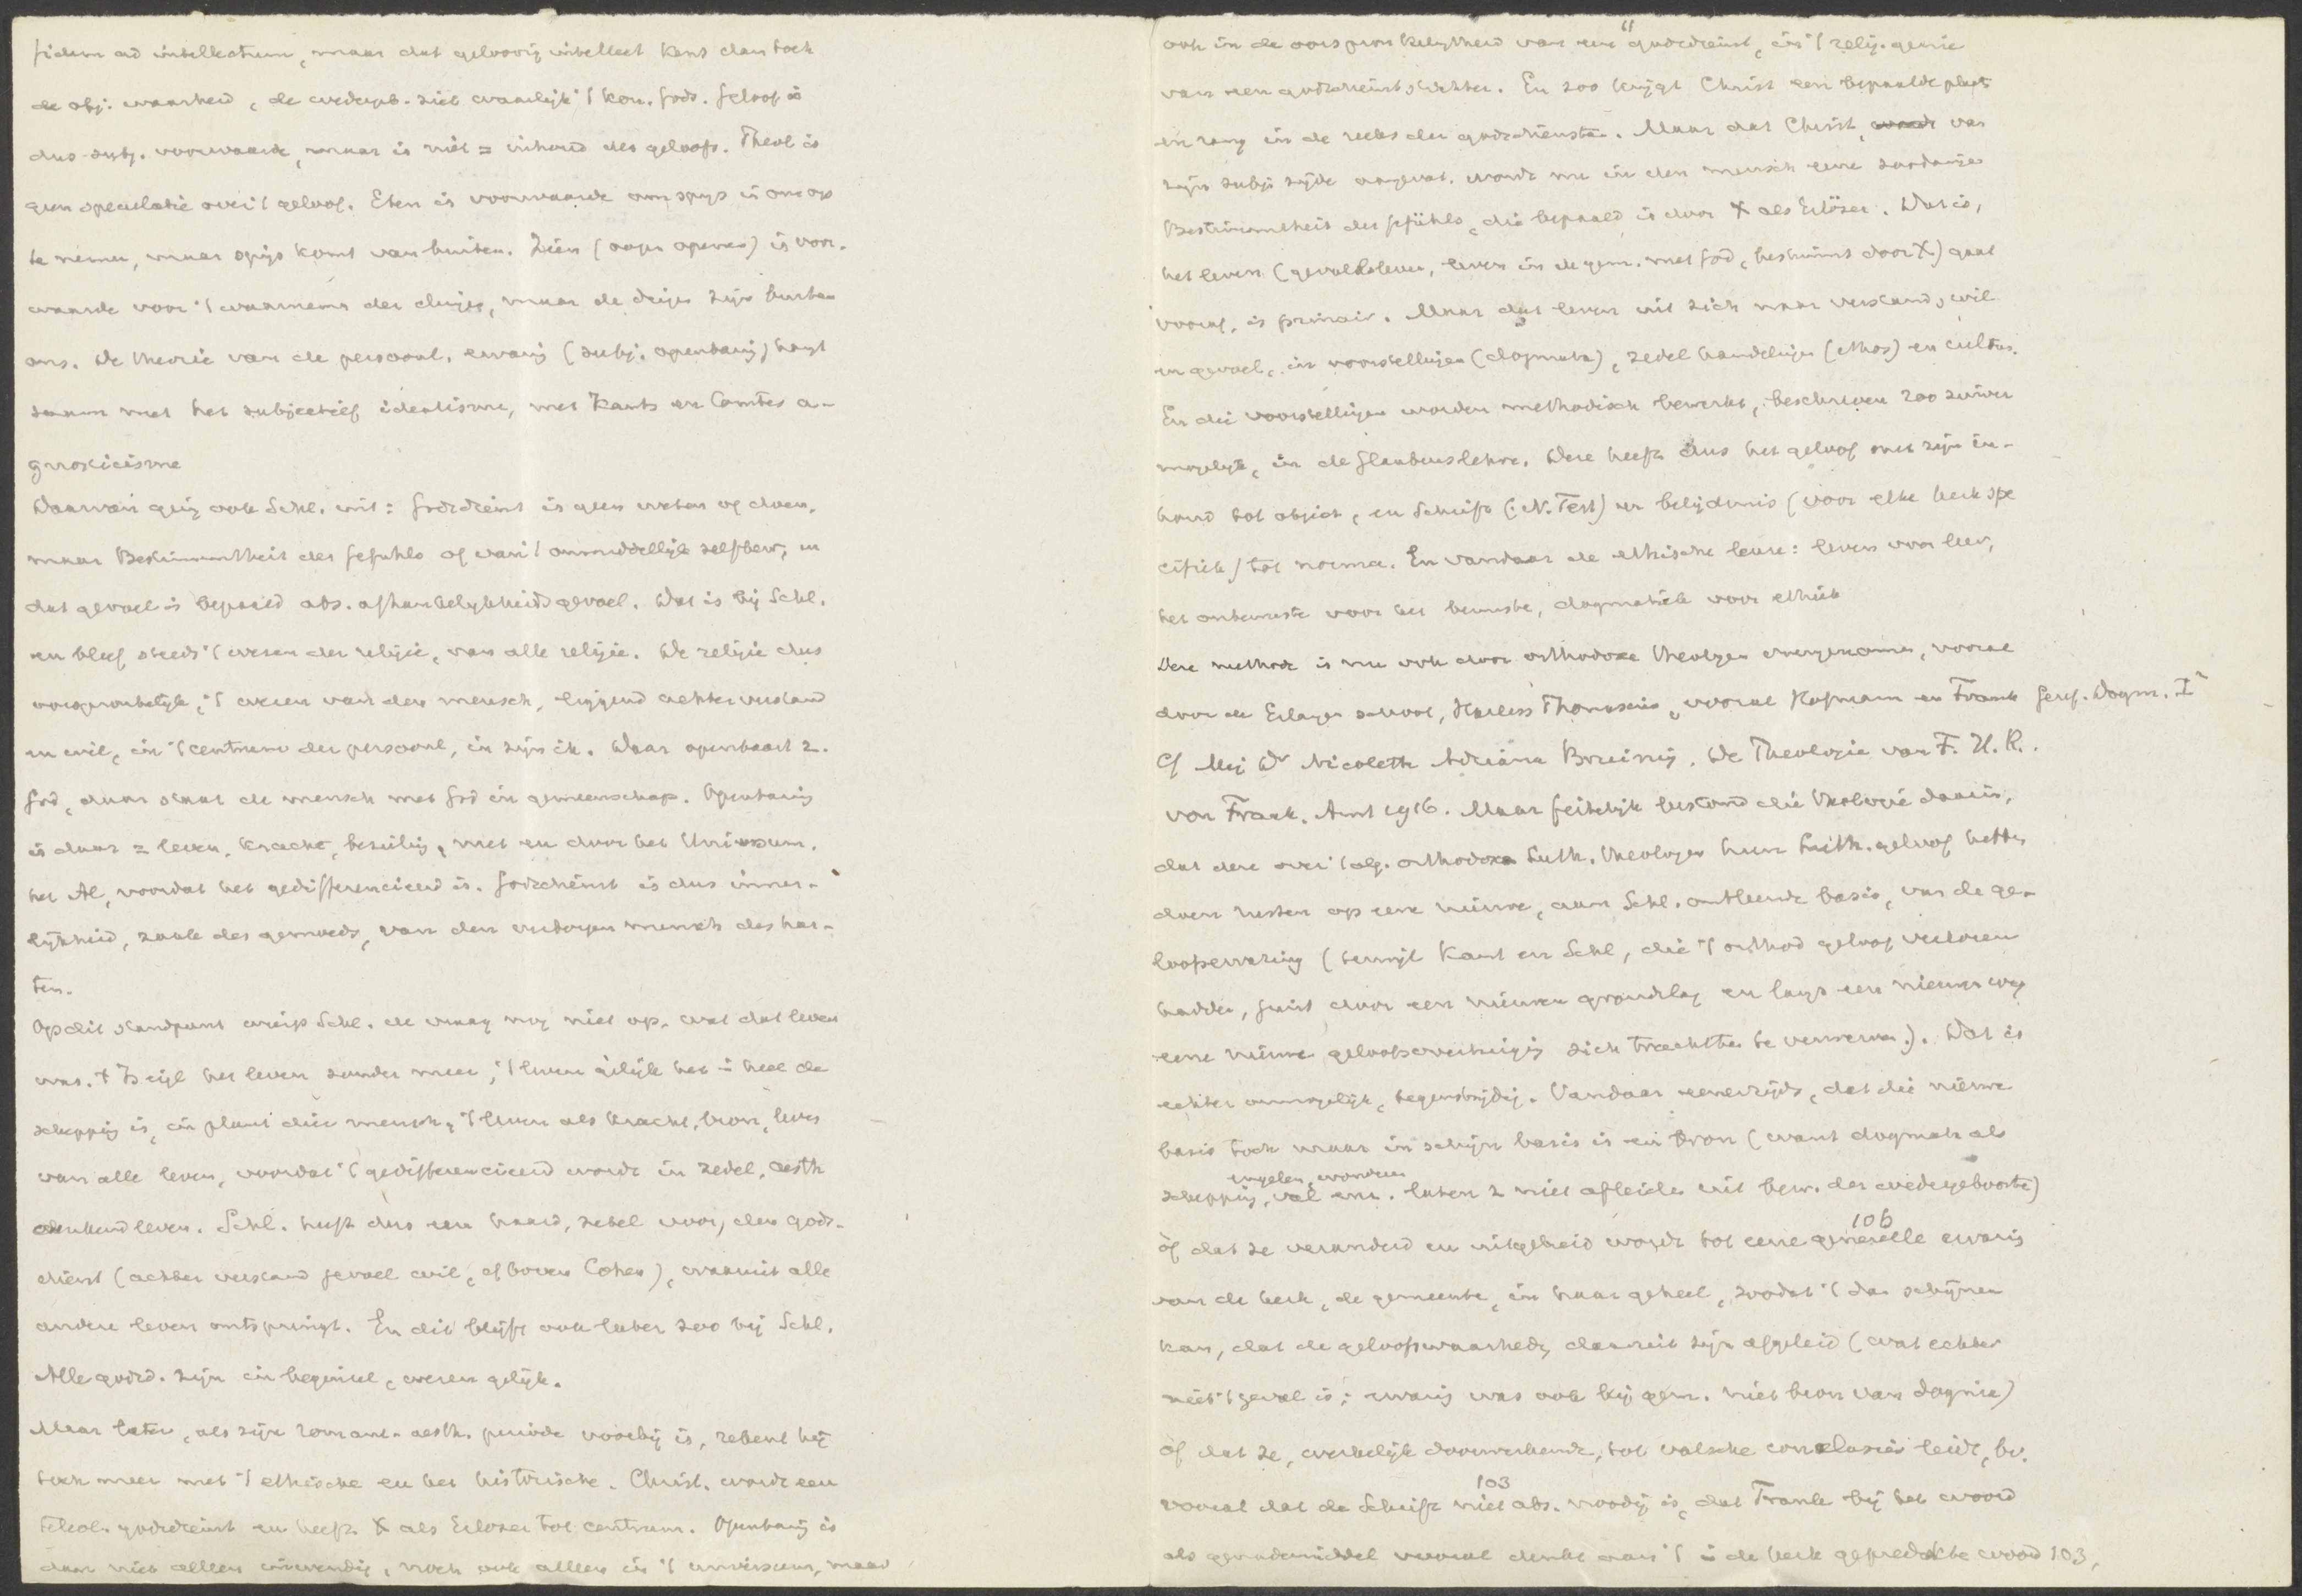 fidem ad intellectum, maar dat geloovig intellect kent dan toch
de obj. waarheid, de wedergeb. ziet waarlijk 't kon. Gods. Geloof is
dus subj. voorwaarde, maar is niet = inhoud des geloofs. Theol is
geen speculatie over 't geloof. Eten is voorwaarde om spijs in ons op
te nemen, maar spijs komt van buiten. Zien (oogen openen) is voor-
waarde voor 't waarnemen der dingen, maar de dingen zijn buiten
ons. De theorie van de persoonl. ervaring (subj. openbaring) hangt
saam met het subjectief idealisme, met Kants en Comtes a-
gnosticisme
Daarvan ging ook Schl. uit: Godsdienst is geen weten of doen,
maar Bestimmtheit des Gefühls of van 't onmiddellijk zelfbew., en
dat gevoel is bepaald abs. afhankelijkheidsgevoel. Dat is bij Schl.
en bleef steeds 't wezen der religie, van alle religie. De religie dus
oorspronkelijk, 't wezen van den mensch, liggend achter verstand
en wil, in 't centrum der persoonl, in zijn ik. Daar openbaart z.
God, daar staat de mensch met God in gemeenschap. Openbaring
is daar = leven, kracht, bezieling, met en door het Universum,
het Al, voordat het gedifferencieerd is. Godsdienst is dus inner-
lijkheid, zaak des gemoeds, van den verborgen mensch des har-
ten.
Op dit standpunt wierp Schl. de vraag nog niet op, wat dat leven
was. 't Is het leven zonder meer, 't leven gelijk het in heel de
schepping is, in plant dier mensch, 't leven als kracht, bron, 
van alle leven, voordat 't gedifferencieerd wordt in zedel. aesth
denkend leven. Schl. heeft dus een haard, zetel voor, den gods-
dienst (achter verstand gevoel wil, of boven Cohen), waaruit alle
andere leven ontspringt. En dit blijft ook later zoo bij Schl.
Alle godsd. zijn in beginsel, wezen gelijk.
Maar later, als zijn romant-aesth. periode voorbij is, rekent hij
toch meer met 't ethische en het historische. Christ. wordt een
teleol. godsdienst en heeft X als Erlöser tot centrum. Openbaring is
dan niet alleen inwendig, noch ook alleen in 't universum, maar
ook in de oorspronkelijkheid van een godsdienst, in 't relig. genie
van een godsdienststichter. En zoo krijgt Christ een bepaalde plaats
en rang in de reeks der godsdiensten. Maar dat Christ, van
zijn subj. zijde opgevat, wordt nu in den mensch eene zoodanige
Bestimmtheit des Gefühls, die bepaald is door X als Erlöser. Dat is,
het leven (gevoelsleven, leven in de gem. met God, bestimmt door X) gaat
vooraf, is primair. Maar dat leven uit zich naar verstand, wil
en gevoel, in voorstellingen (dogmata), zedel handelingen (ethos) en cultus.
En die voorstellingen worden methodisch bewerkt, beschreven zoo zuiver
mogelijk, in de Glaubenslehre. Deze heeft dus het geloof met zijn in-
houd tot object, en Schrift (: N. Test) en belijdenis (voor elke kerk spe
cifiek) tot norma. En vandaar de ethische leuze: leven voor leer,
het onbewuste voor het bewuste, dogmatiek voor ethiek
Deze methode is nu ook door orthodoxe theologen overgenomen, vooral
door de Erlanger school, Harless Thomasius, vooral Hofmann en Frank Geref. Dogm. I²
Cf Mej Dr Nicolette Adriana Bruining, De Theologie van F. H. R.
von Frank. Amst 1916. Maar feitelijk bestond die theologie daarin,
dat deze over 't alg. orthodoxe Luth. theologen hun Luth. geloof hebben
doen rusten op eene nieuwe, aan Schl. ontleende basis, van de ge-
loofservaring (terwijl Kant en Schl, die 't orthod geloof verloren
hadden, juist door een nieuwen grondslag en langs een nieuwen weg
eene nieuwe geloofsovertuiging zich trachtten te verwerven). Dat is
echter onmogelijk, tegenstrijdig. Vandaar eenerzijds, dat die nieuwe
basis toch maar in schijn basis is en bron (want dogmata als
engelen, wonderen
schepping, val enz. laten z niet afleiden uit bew. der wedergeboorte)
106
òf dat ze veranderd en uitgebreid wordt tot eene generelle ervaring
van de kerk, de gemeente, in haar geheel, zoodat 't dan schijnen
kan, dat de geloofswaarheden daaruit zijn afgeleid (wat echter
niet 't geval is; ervaring was ook bij gem. niet bron van dogma)
òf dat ze, werkelijk doorwerkende, tot valsche conclusies leidt, bv.
103
vooral dat de Schrift niet abs. noodig is, dat Frank bij het woord
als genademiddel vooral denkt aan 't in de kerk gepredikte woord 103,